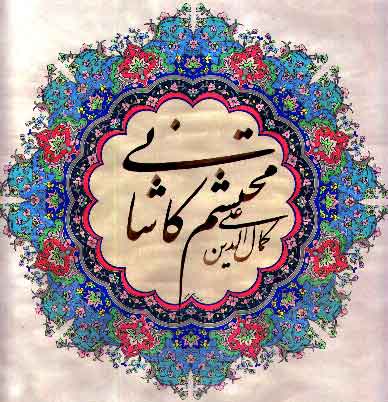 کمال الدین علی
محتشم کاشانی